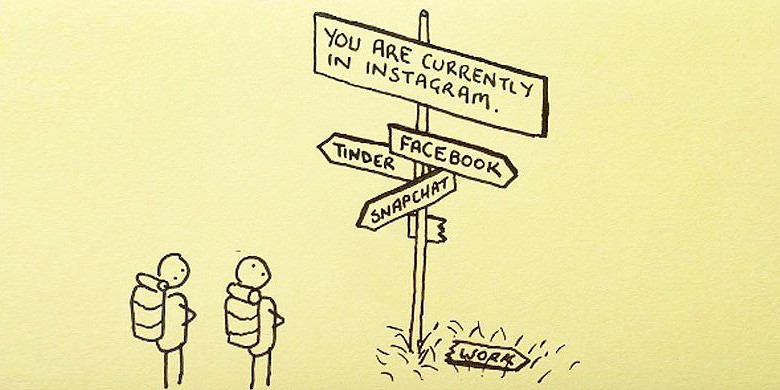 YOU ARE CURRENTLY
IN INSTAGRAM.
TINDER
FACEBOOK
SNAPCHAT
WORK